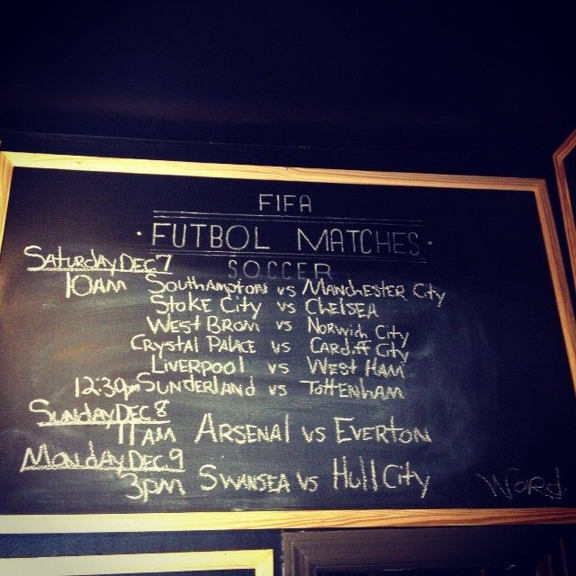 FIFA
· FUTBOL MATCHES ·
SOCCER
SATURDAY DEC 7
10AM SOUTHAMPTON VS MANCHESTER CITY
STOKE CITY VS CHELSEA
WEST BROM VS NORWICH CITY
CRYSTAL PALACE VS CARDIFF CITY
LIVERPOOL VS WEST HAM
12:30pm SUNDERLAND VS TOTTENHAM
SUNDAY DEC 8
11AM ARSENAL VS EVERTON
MONDAY DEC 9
3pm SWANSEA VS HULL CITY
WORD.